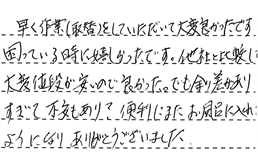 早く作業(取替)をしていただいて大変良かったです
困っている時に嬉しかったです。他社と比較して
大変値段が安いので良かった。でも余り差があり
すぎて不安もあり? 便利にまたお風呂に入れる
ようになりありがとうございました